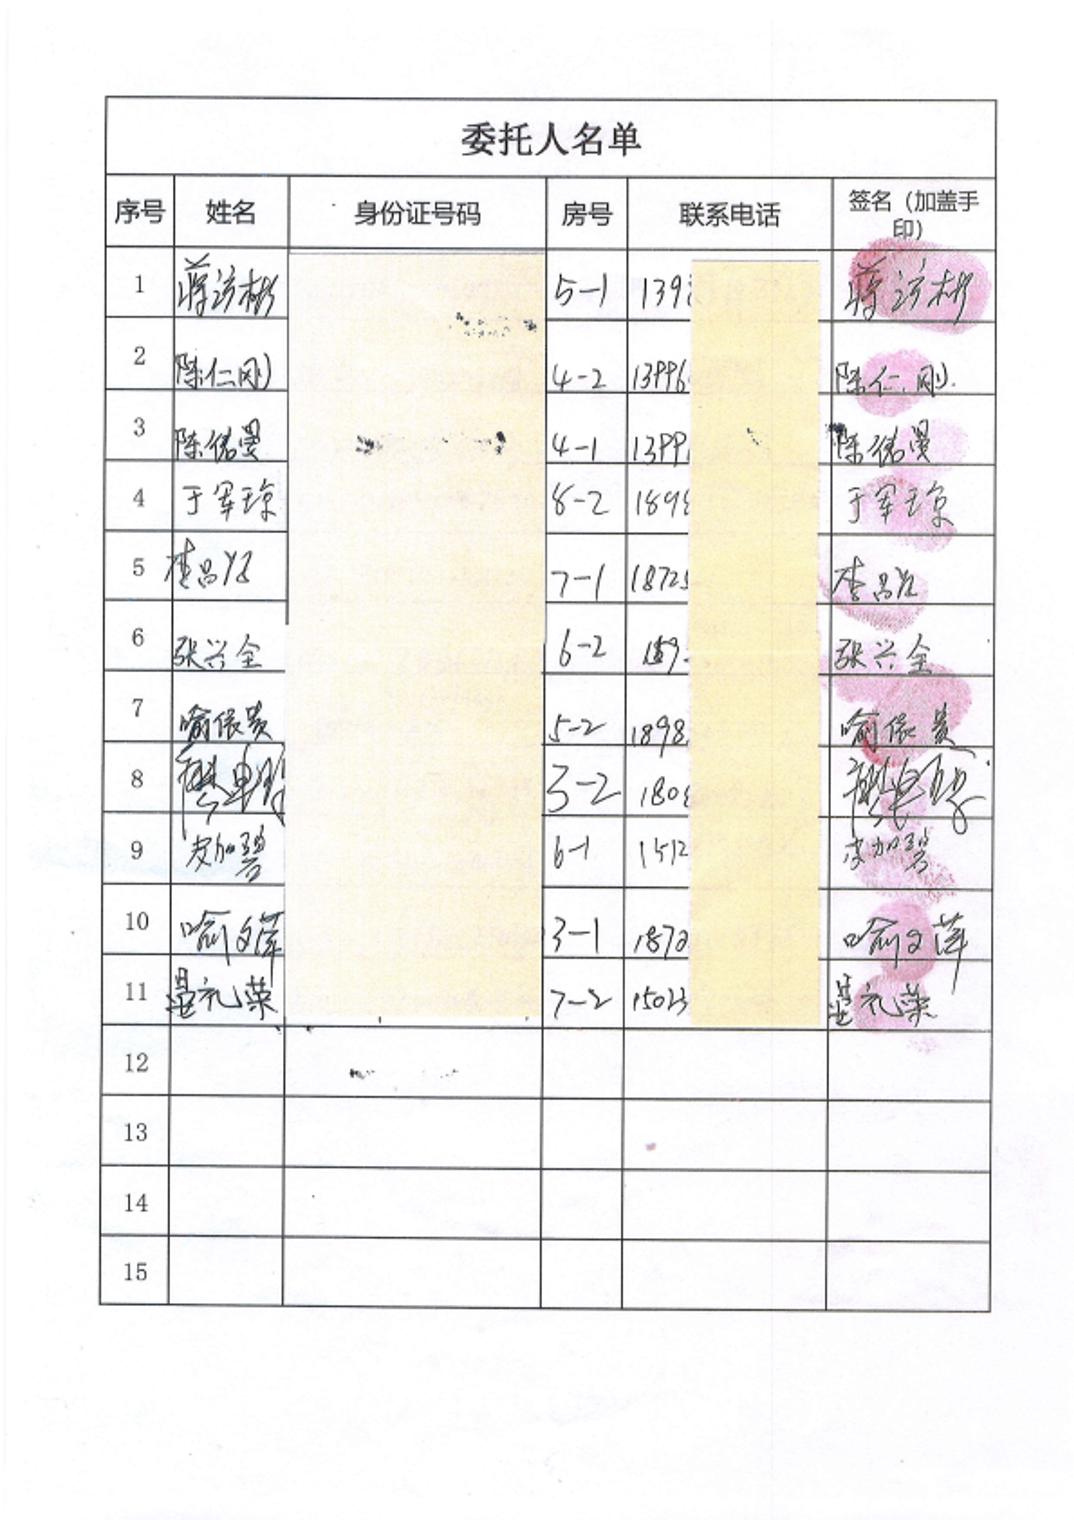 委托人名单
序号 姓名 身份证号码 房号 联系电话 签名（加盖手印）
1 蒋访彬 5-1 139 蒋访彬
2 陈仁刚 4-2 13996 陈仁刚
3 陈倨曼 4-1 1399 陈倨曼
4 于军琼 8-2 1898 于军琼
5 李昌 7-1 18725 李昌
6 张兴全 6-2 张兴全
7 喻依贵 5-2 1898 喻依贵
8 3-2 180
9 皮加碧 6-1 1512 皮加碧
10 喻文萍 3-1 1872 喻文萍
11 礼荣 7-2 15023 礼荣
12
13
14
15